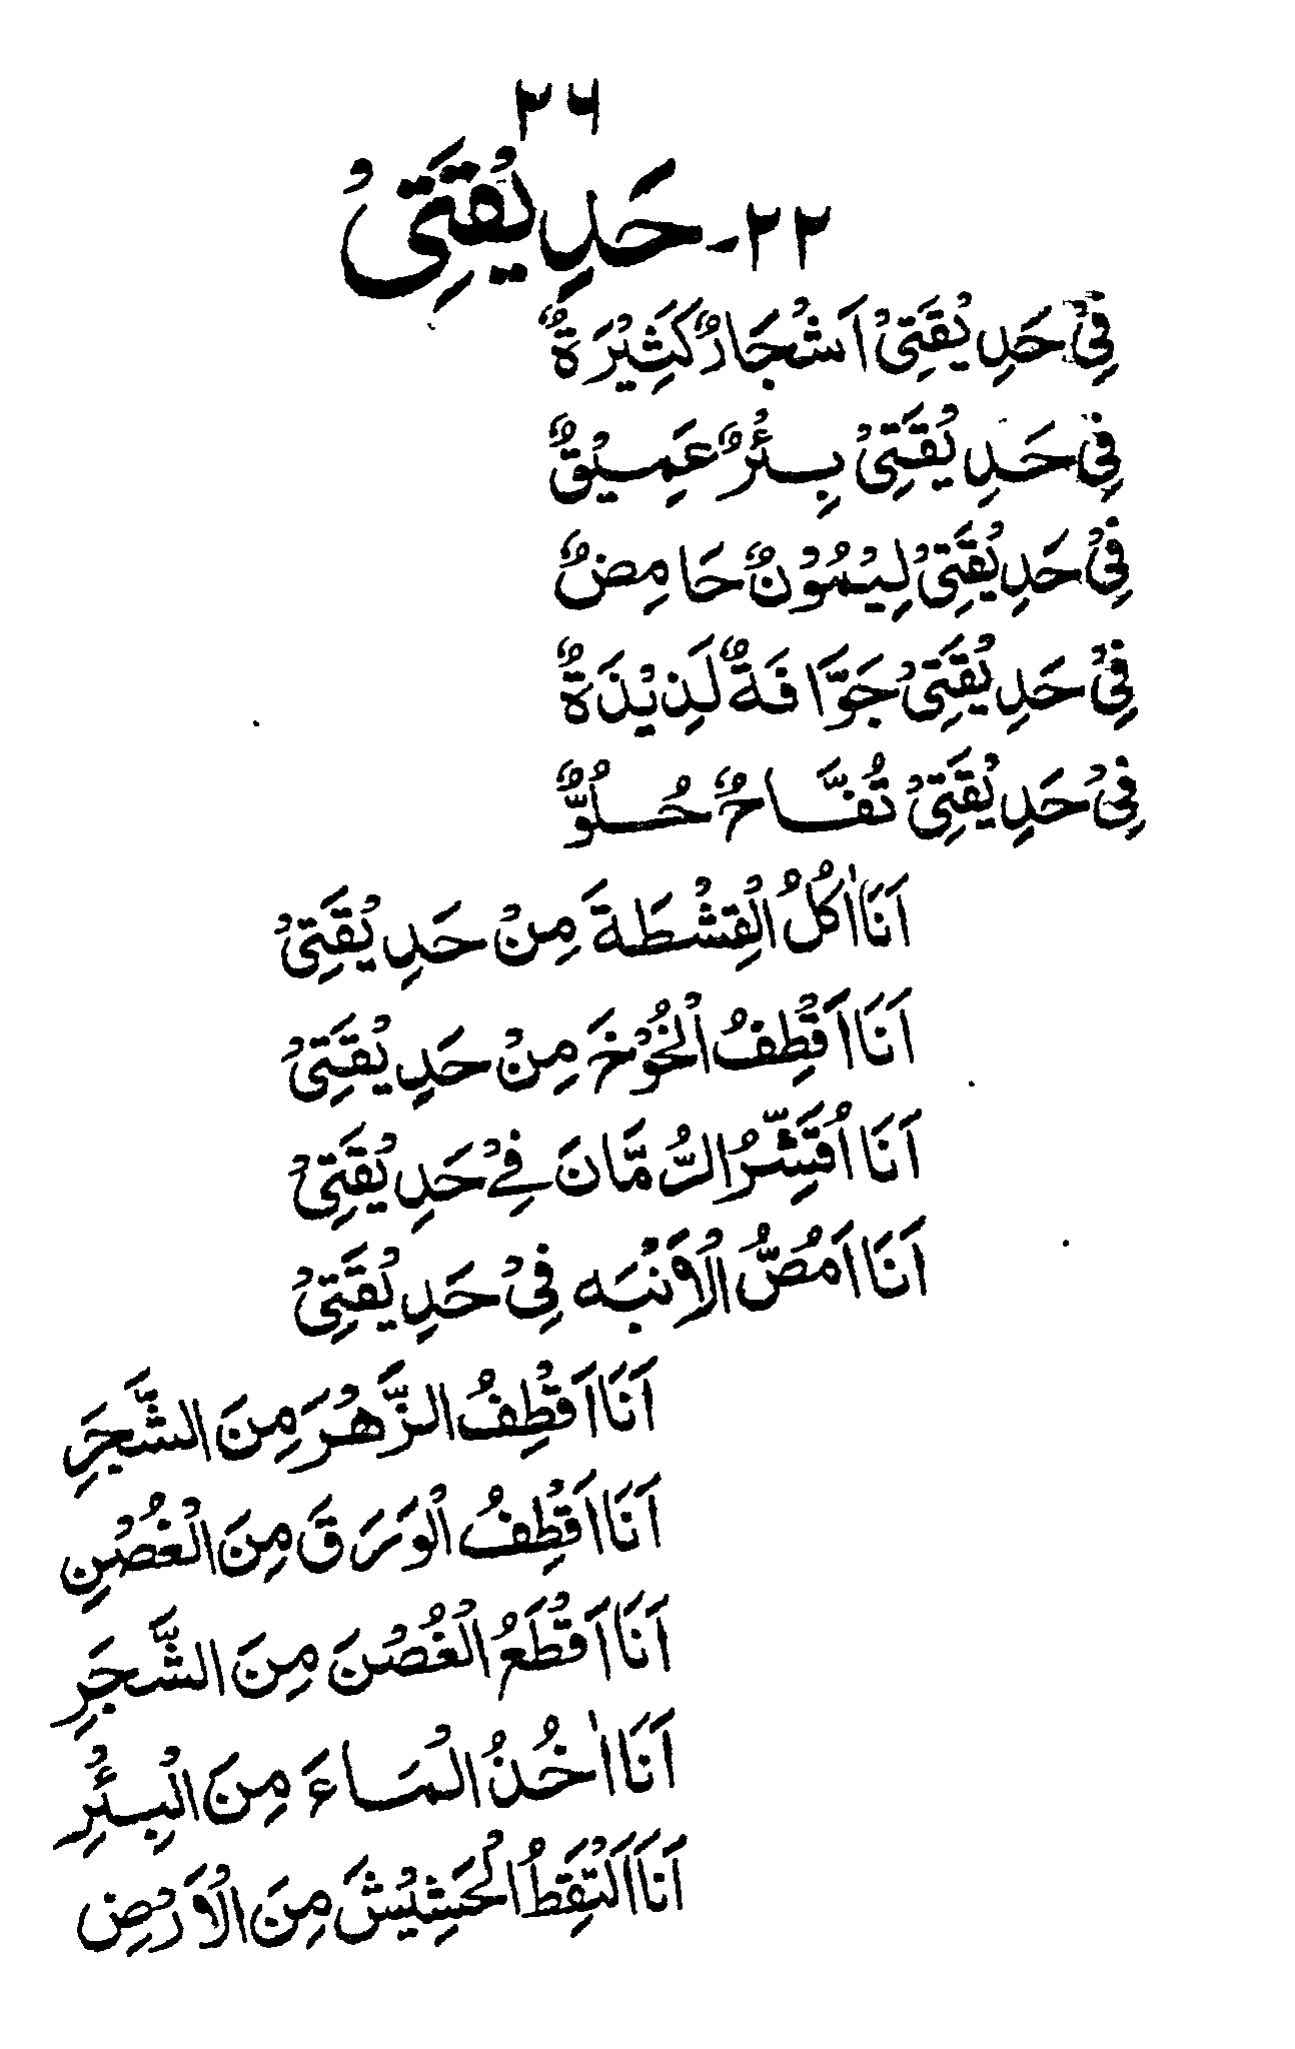 ٢٦
٢٢- حَدِيْقَتِيْ
فِيْ حَدِيْقَتِيْ اَشْجَارٌ كَثِيْرَةٌ
فِيْ حَدِيْقَتِيْ بِئْرٌ عَمِيْقٌ
فِيْ حَدِيْقَتِيْ لِيْمُوْنٌ حَامِضٌ
فِيْ حَدِيْقَتِيْ جَوَّافَةٌ لَذِيْذَةٌ
فِيْ حَدِيْقَتِيْ تُفَّاحٌ حُلُوٌّ
اَنَا اٰكُلُ الْقِشْطَةَ مِنْ حَدِيْقَتِيْ
اَنَا اَقْطِفُ الْخُوْخَ مِنْ حَدِيْقَتِيْ
اَنَا اُقَشِّرُ الرُّمَّانَ فِيْ حَدِيْقَتِيْ
اَنَا اَمُصُّ الْاَنْبَه فِيْ حَدِيْقَتِيْ
اَنَا اَقْطِفُ الزَّهْرَ مِنَ الشَّجَرِ
اَنَا اَقْطِفُ الْوَرَقَ مِنَ الْغُصْنِ
اَنَا اَقْطَعُ الْغُصْنَ مِنَ الشَّجَرِ
اَنَا اٰخُذُ الْمَاءَ مِنَ الْبِئْرِ
اَنَا اَلْتَقِطُ الْحَشِيْشَ مِنَ الْاَرْضِ